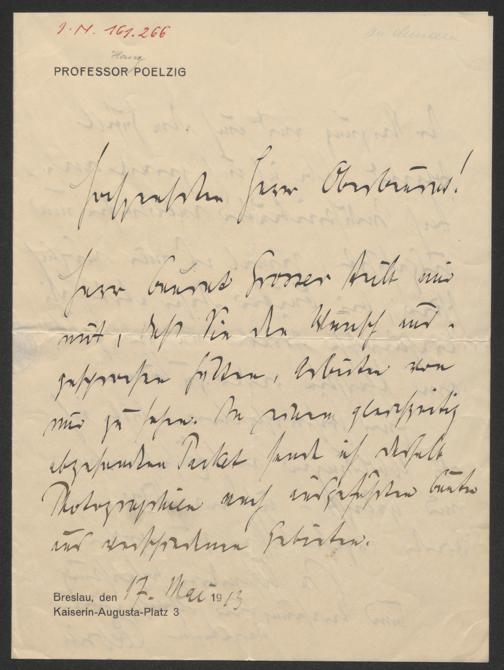 J.N. 161.266
Hans
PROFESSOR POELZIG
Hochgeehrter Herr Oberbaurat!
Herr Baurat Grosser teilt mir
mit, daß Sie den Wunsch aus-
gesprochen hätten, Arbeiten von
mir zu sehen. In einem gleichzeitig
abgesandten Packet sende ich deshalb
Photographien nach ausgeführten Bauten
aus verschiedenen Gebieten.
Breslau, den 17. Mai 1913
Kaiserin-Augusta-Platz 3